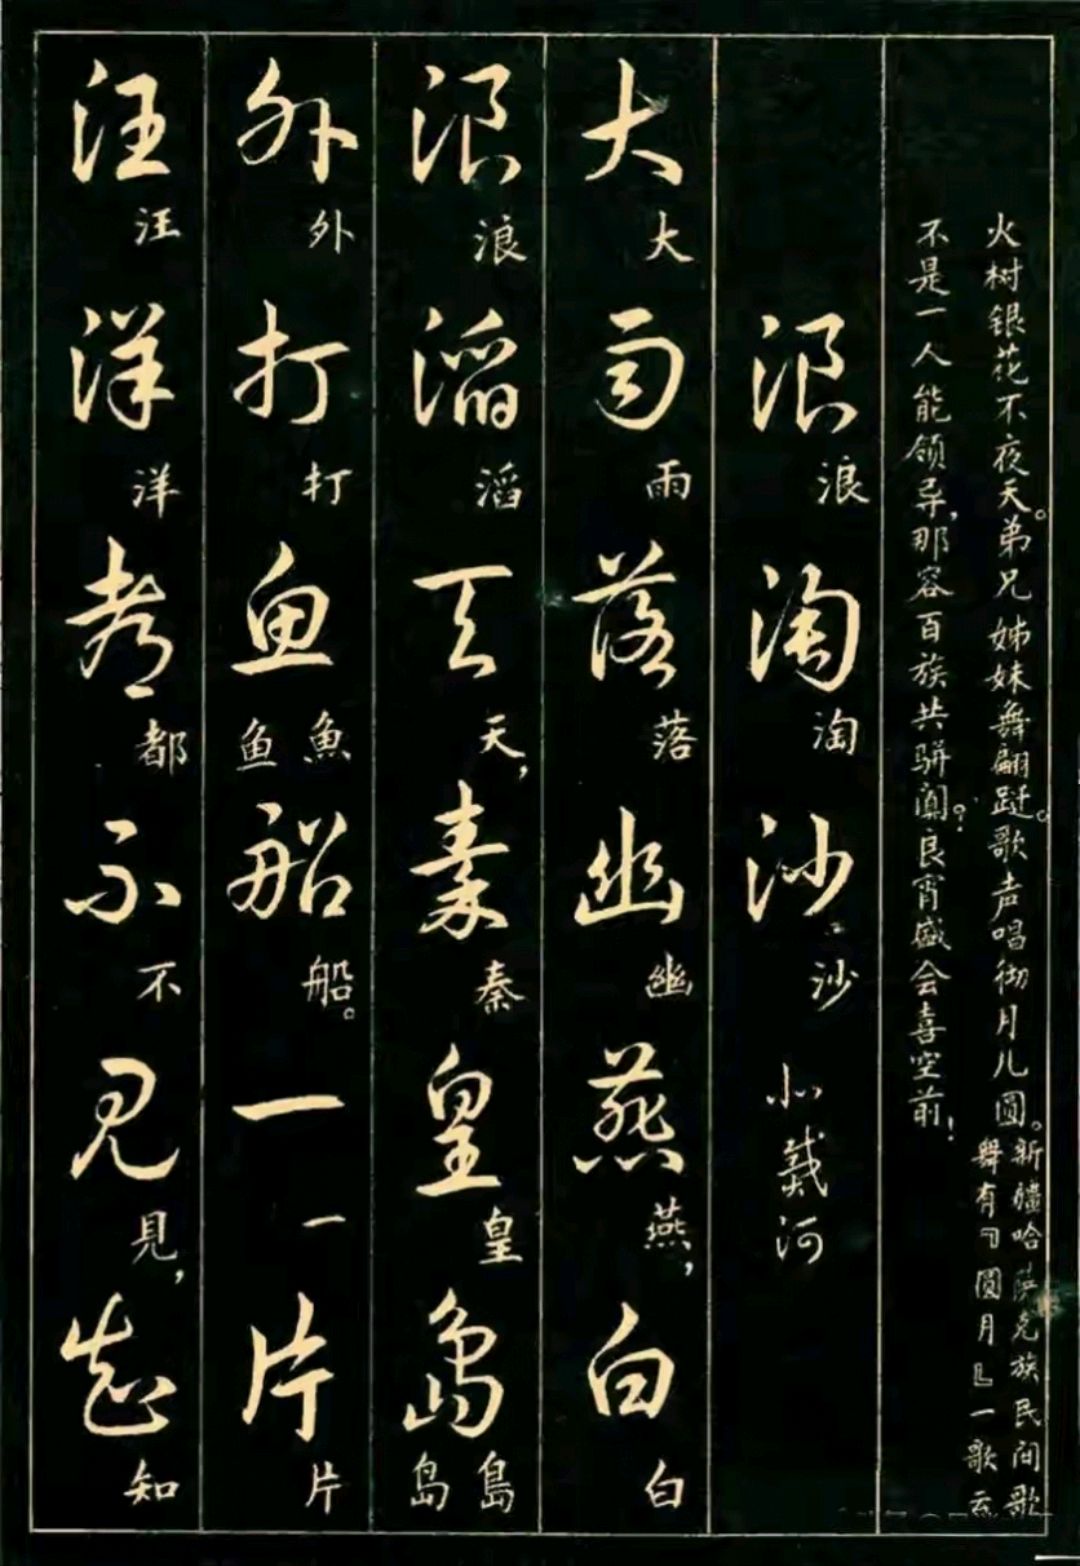 火树银花不夜天。弟兄姊妹舞翩跹。歌声唱彻月儿圓。
新疆哈萨克族民间歌
舞有『圓月』一歌云
不是一人能领导,那容百族共骈阗?良宵盛会喜空前!
浪淘沙
浪淘沙
北戴河
大雨落幽燕白
大雨落幽燕,白
浪滔天秦皇岛
浪滔天,秦皇島岛
外打鱼船一片
外打魚鱼船。一片
汪洋都不见知
汪洋都不見,知